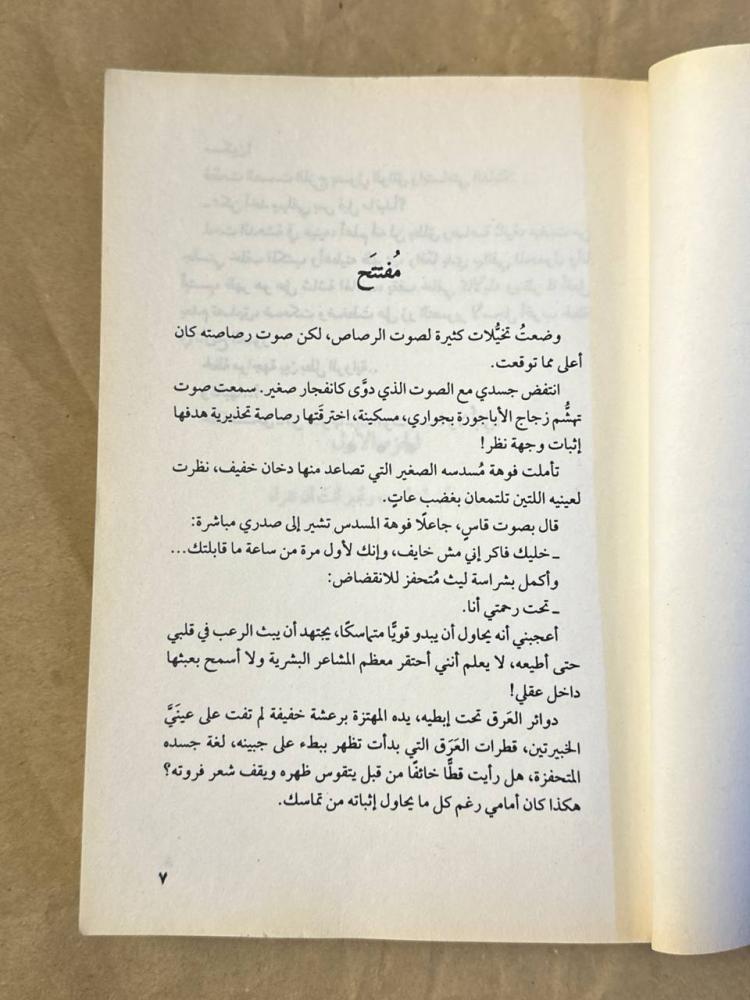 مُفتتَح
وضعتُ تخيُّلات كثيرة لصوت الرصاص، لكن صوت رصاصته كان
أعلى مما توقعت.
انتفض جسدي مع الصوت الذي دوَّى كانفجار صغير. سمعت صوت
تهشُّم زجاج الأباجورة بجواري، مسكينة، اخترقَتها رصاصة تحذيرية هدفها
إثبات وجهة نظر!
تأملت فوهة مُسدسه الصغير التي تصاعد منها دخان خفيف، نظرت
لعينيه اللتين تلتمعان بغضب عاتٍ.
قال بصوت قاسٍ، جاعلًا فوهة المسدس تشير إلى صدري مباشرة:
ـ خليك فاكر إني مش خايف، وإنك لأول مرة من ساعة ما قابلتك...
وأكمل بشراسة ليث مُتحفز للانقضاض:
ـ تحت رحمتي أنا.
أعجبني أنه يحاول أن يبدو قويًّا متماسكًا، يجتهد أن يبث الرعب في قلبي
حتى أطيعه، لا يعلم أنني أحتقر معظم المشاعر البشرية ولا أسمح بعبثها
داخل عقلي!
دوائر العَرق تحت إبطيه، يده المهتزة برعشة خفيفة لم تفت على عينَيَّ
الخبيرتين، قطرات العَرَق التي بدأت تظهر ببطء على جبينه، لغة جسده
المتحفزة، هل رأيت قطًّا خائفًا من قبل يتقوس ظهره ويقف شعر فروته؟
هكذا كان أمامي رغم كل ما يحاول إثباته من تماسك.
٧